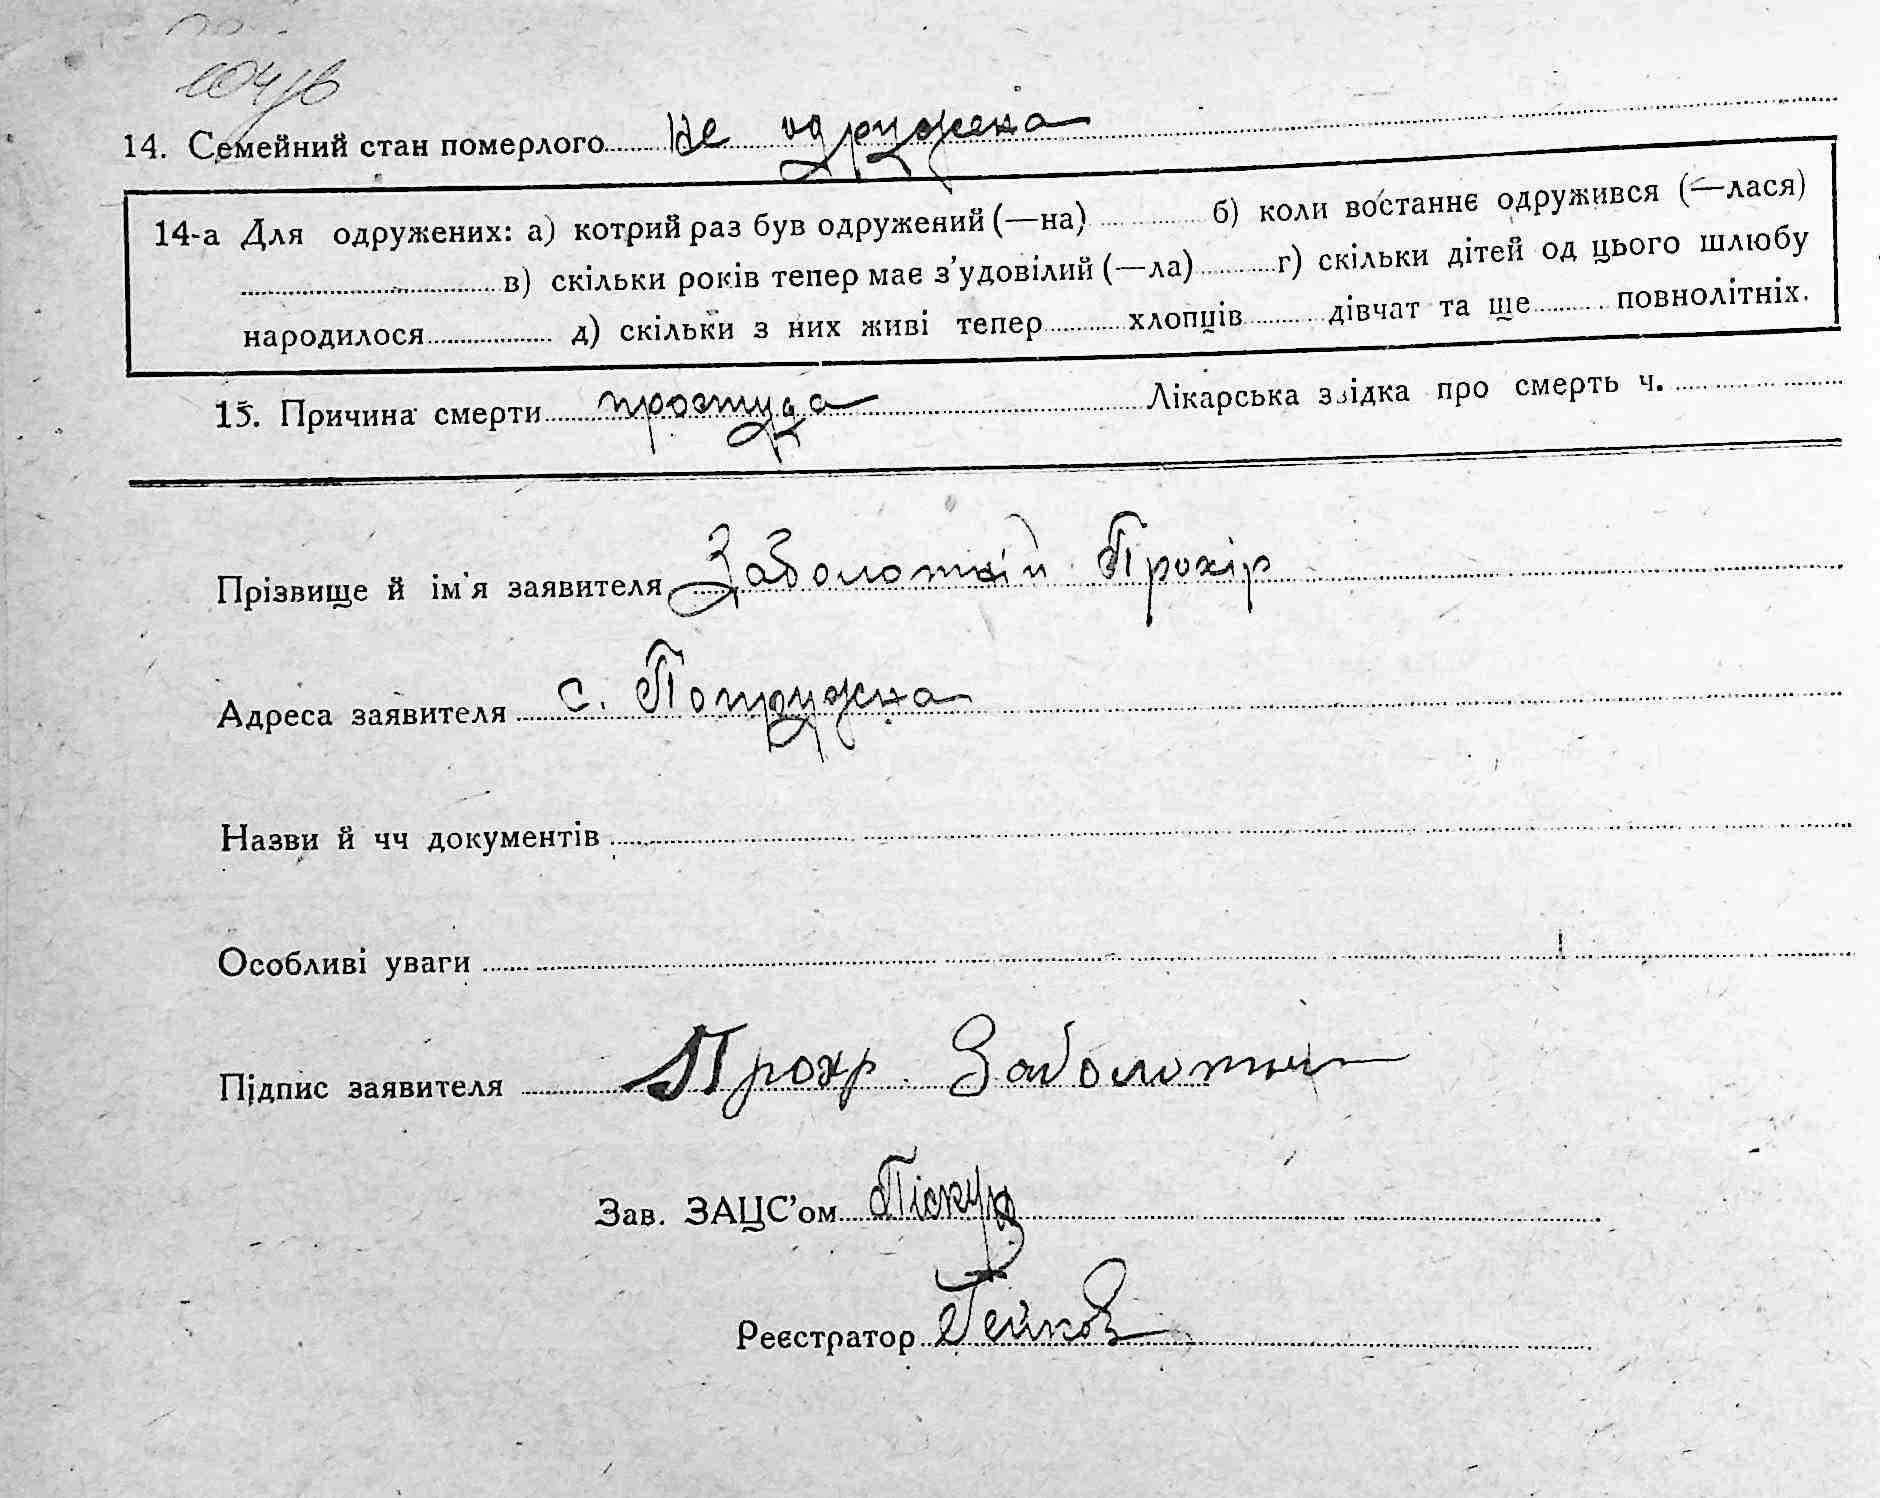 14. Семейний стан померлого Не одружена
14-а Для одружених: а) котрий раз був одружений (—на) б) коли востаннє одружився (—лася)
в) скільки років тепер має з’удовілий (—ла) г) скільки дітей од цього шлюбу
народилося д) скільки з них живі тепер хлопців дівчат та ще повнолітніх.
15. Причина смерти простуда Лікарська звідка про смерть ч.
Прізвище й ім’я заявителя Заболотній Прохір
Адреса заявителя с. Потружна
Назви й чч документів
Особливі уваги
Підпис заявителя Прохр Заболотній
Зав. ЗАЦС’ом Піскур
Реєстратор